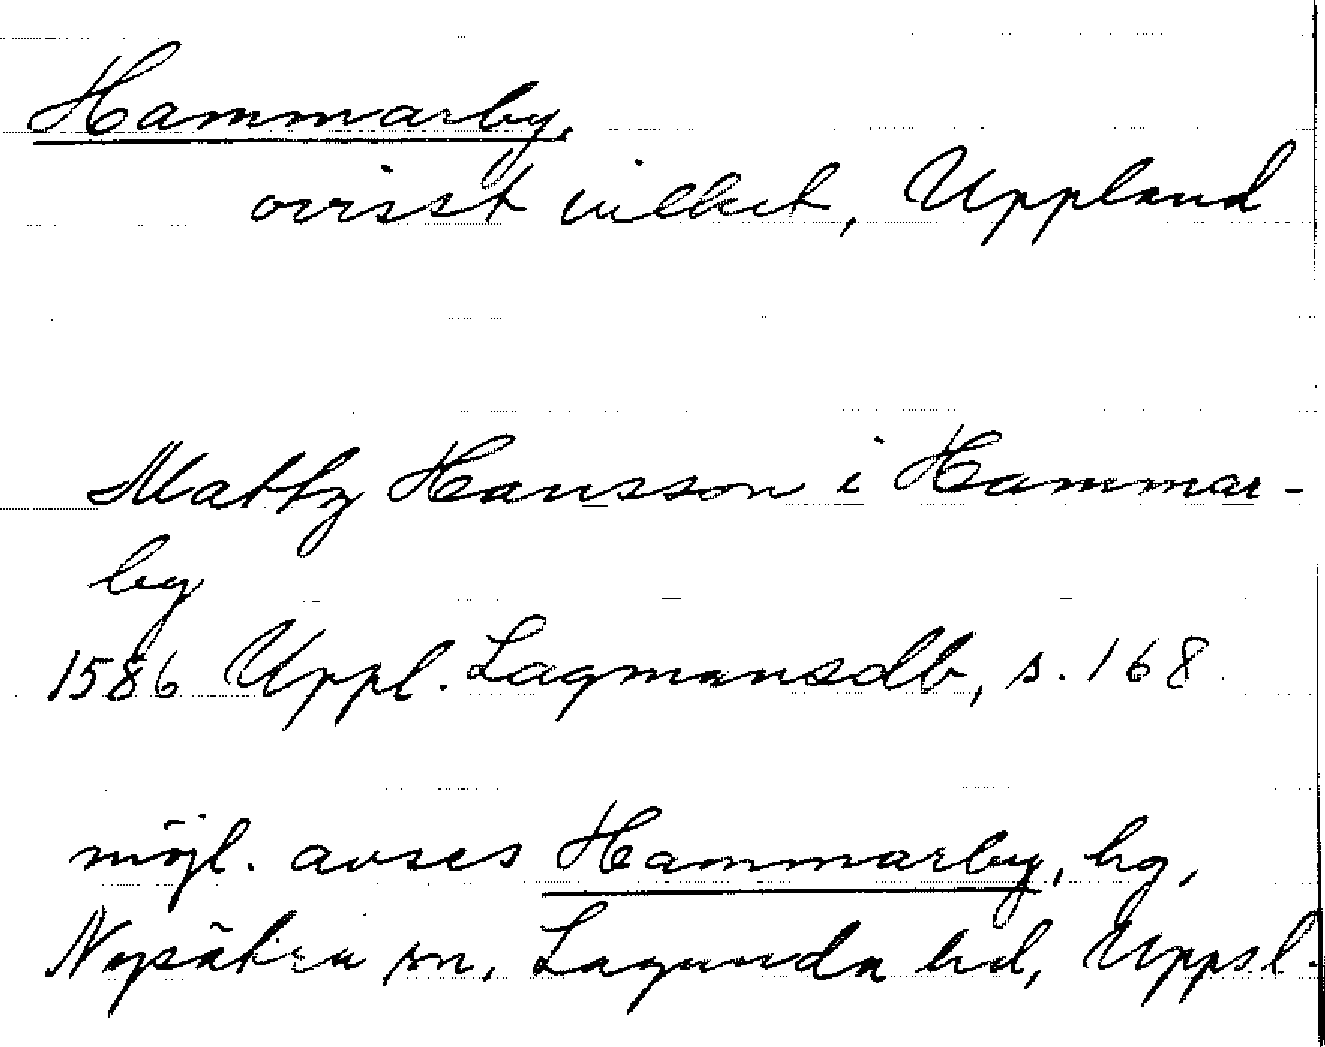 Hammarby,
ovisst vilket, Uppland
Matthz Hansson i Hammar-
by
1586 Uppl. Lagmansdb, s. 168
möjl. avses Hammarby, hg,
Nysätra sn, Lagunda hd, Uppsl.